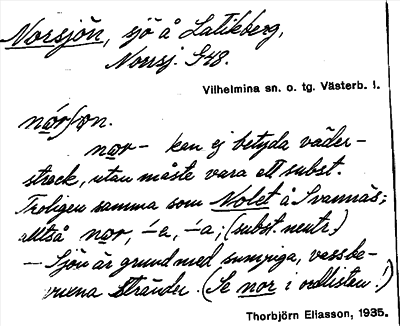 Norsjön, sjö å Latikberg,
Norrsj. S48.
Vilhelmina sn. o. tg. Västerb. l.
nor- kan ej betyda väder-
streck, utan måste vara ett subst.
Troligen samma som Nolet å Svannäs;
alltså nor, -e, -a; (subst. neutr.)
- Sjön är grund med sumpiga, vassbe-
vuxna stränder. (Se nor i ordlistan!)
Thorbjörn Eliasson, 1935.